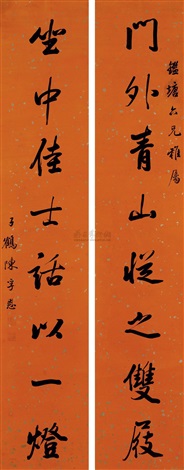 鑑塘六兄雅屬
門外青山從之雙屐
坐中佳士話以一燈
子鶴陳孚恩